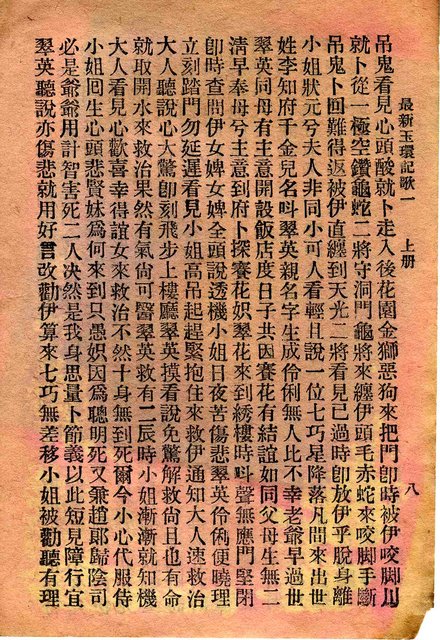 最新玉環記歌一　上册　八
吊鬼看見心頭酸就卜走入後花園金獅惡狗來把門卽時被伊咬脚川
就卜從一極空鑽龜蛇二將守洞門龜將來纏伊頭毛赤蛇來咬脚手斷
吊鬼卜回難得返被伊直纏到天光二將看見已過時卽放伊乎脫身離
小姐狀元兮夫人非同小可人看輕且說一位七巧星降落凡間來出世
姓李知府千金兒名呌翠英親名字生成伶俐無人比不幸老爺早過世
翠英同母有主意開設飯店度日子共因賽花有結誼如同父母生無二
淸早奉母兮主意到府卜探賽花妶翠花來到綉樓時呌聲無應門堅閉
卽時查問伊女婢女婢全頭說透機小姐日夜苦傷悲翠英伶俐便曉理
立刻踏門勿延遲看見小姐高吊起趕緊抱住來救伊通知大人速救治
大人聽說心大驚卽刻飛步上樓廳翠英摸看說免驚解救尙且也有命
就取開水來救治果然有氣尙可醫翠英救有二辰時小姐漸漸就知機
大人看見心歡喜幸得誼女來救治不然十身無到死爾今小心代服侍
小姐回生心頭悲賢妹爲何來到只愚妶因爲聰明死又兼趙郞歸陰司
必是爺爺用計智害死二人决然是我身思量卜節義以此短見障行宜
翠英聽說亦傷悲就用好言改勸伊算來七巧無差移小姐被勸聽有理